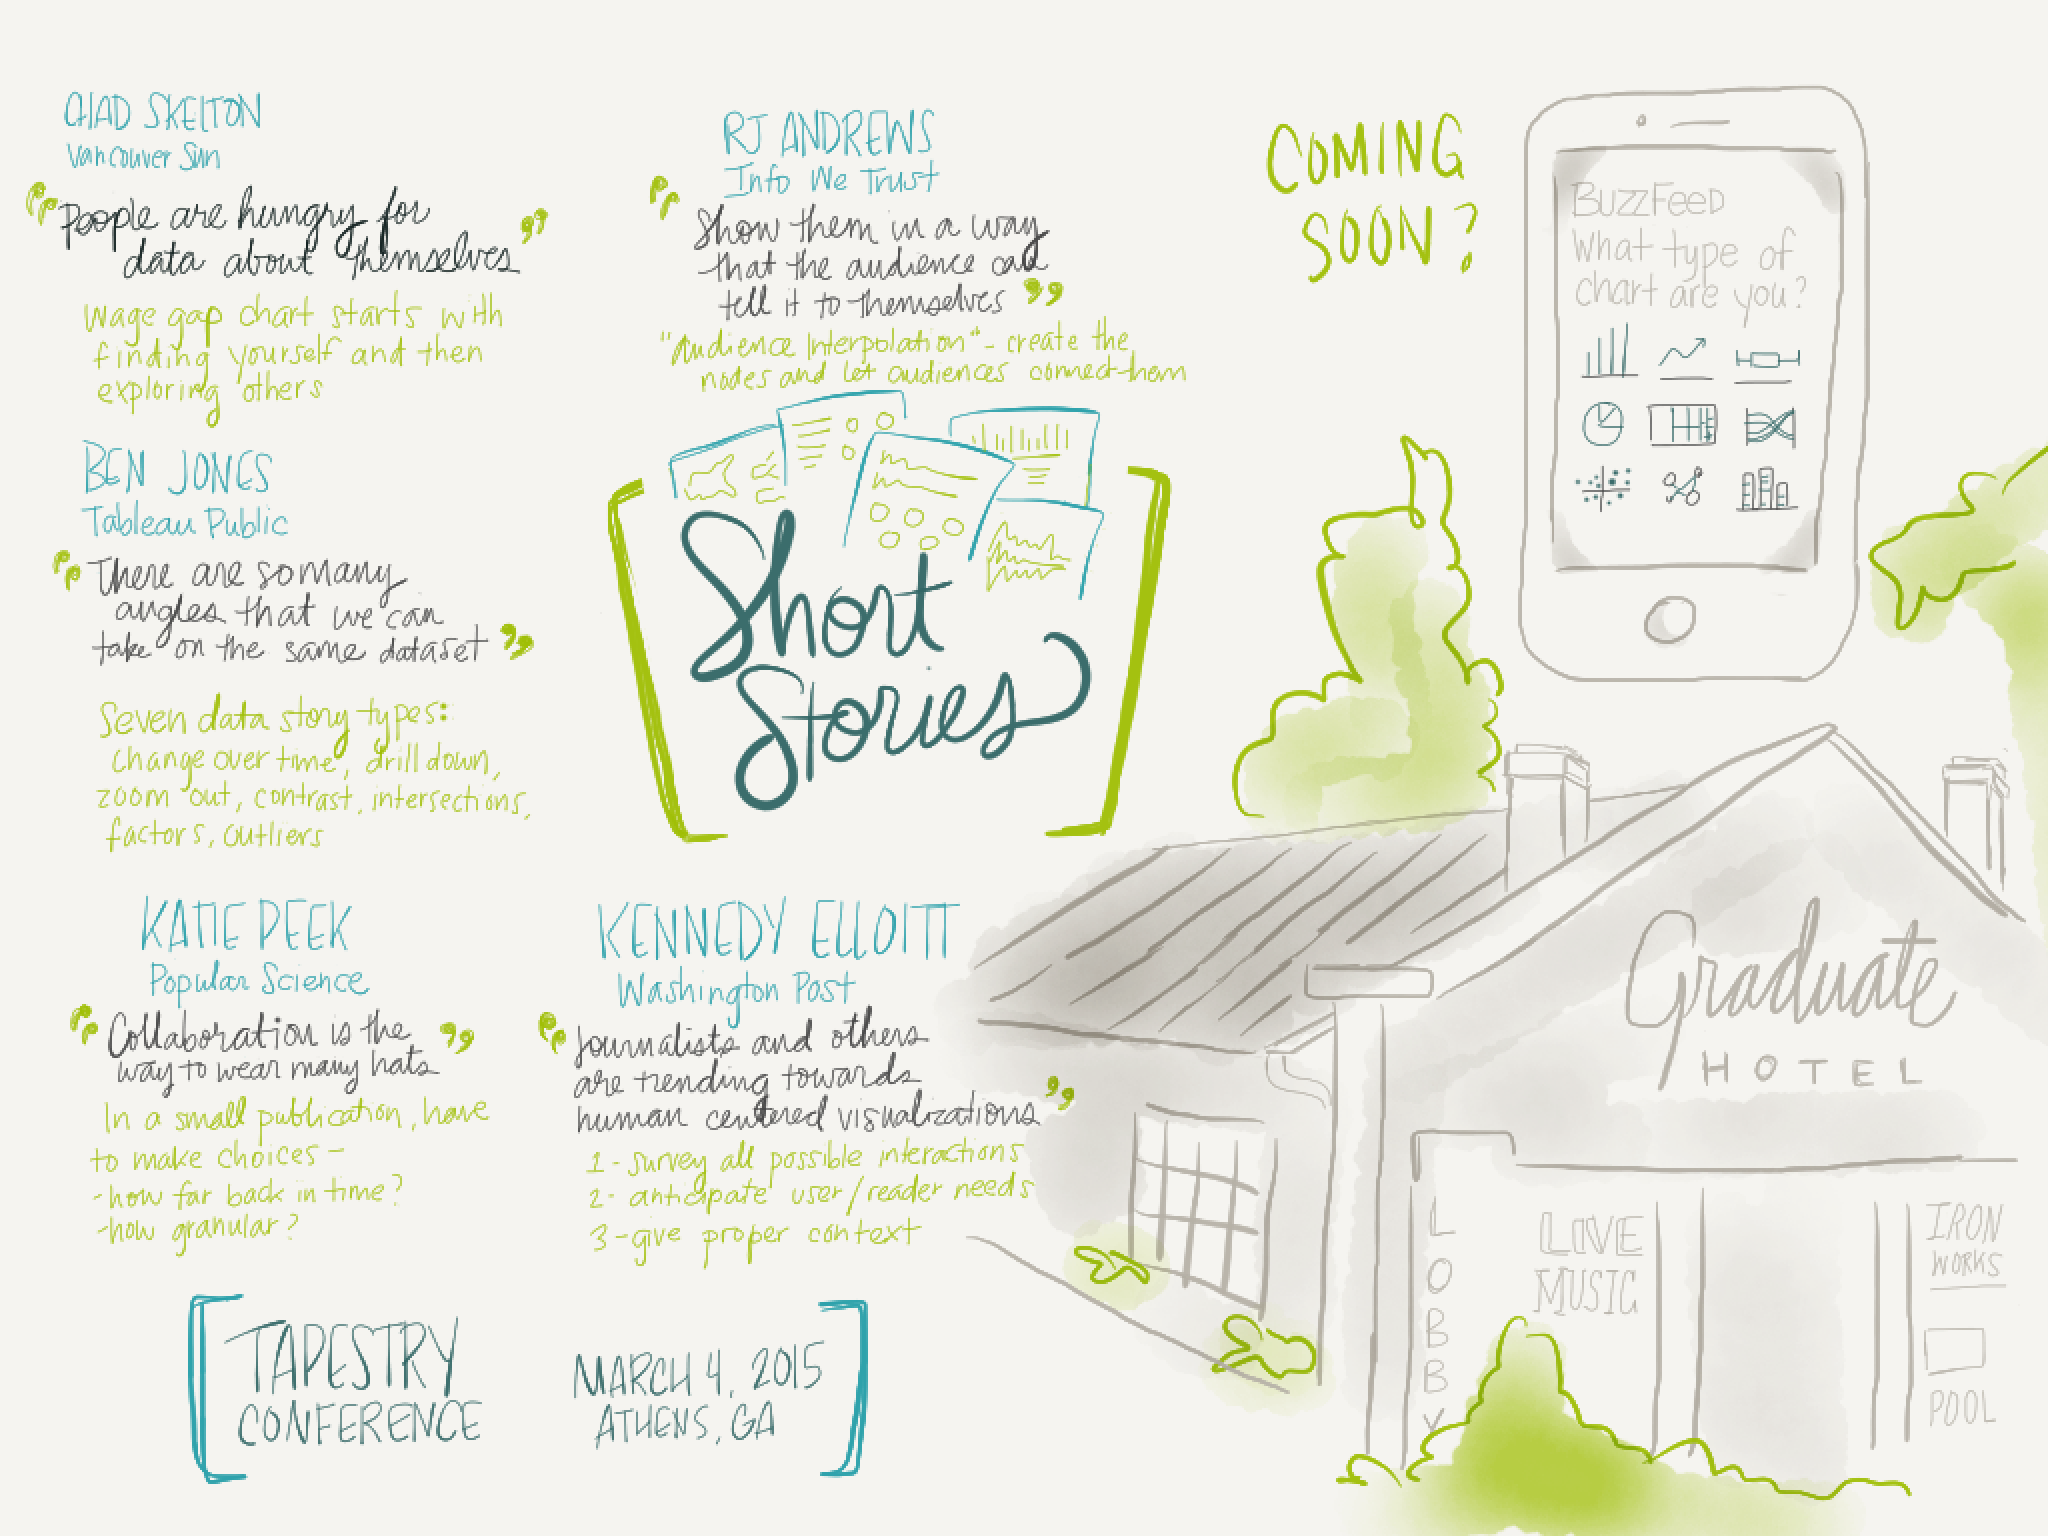 CHAD SKELTON
Vancouver Sun
"People are hungry for
data about themselves"
wage gap chart starts with
finding yourself and then
exploring others
BEN JONES
Tableau Public
"There are so many
angles that we can
take on the same dataset"
Seven data story types:
change over time, drill down,
zoom out, contrast, intersections,
factors, outliers
KATIE PEEK
Popular Science
"Collaboration is the
way to wear many hats"
In a small publication, have
to make choices -
-how far back in time?
-how granular?
RJ ANDREWS
Info We Trust
"Show them in a way
that the audience can
tell it to themselves"
"Audience Interpolation" - create the
nodes and let audiences connect them
Short
Stories
KENNEDY ELLOITT
Washington Post
"Journalists and others
are trending towards
human centered visualizations"
1 - survey all possible interactions
2 - anticipate user/reader needs
3 - give proper context
TAPESTRY
CONFERENCE
MARCH 4, 2015
ATHENS, GA
COMING
SOON?
BuzzFeed
What type of
chart are you?
Graduate
HOTEL
LOBBY
LIVE
MUSIC
IRON
WORKS
POOL